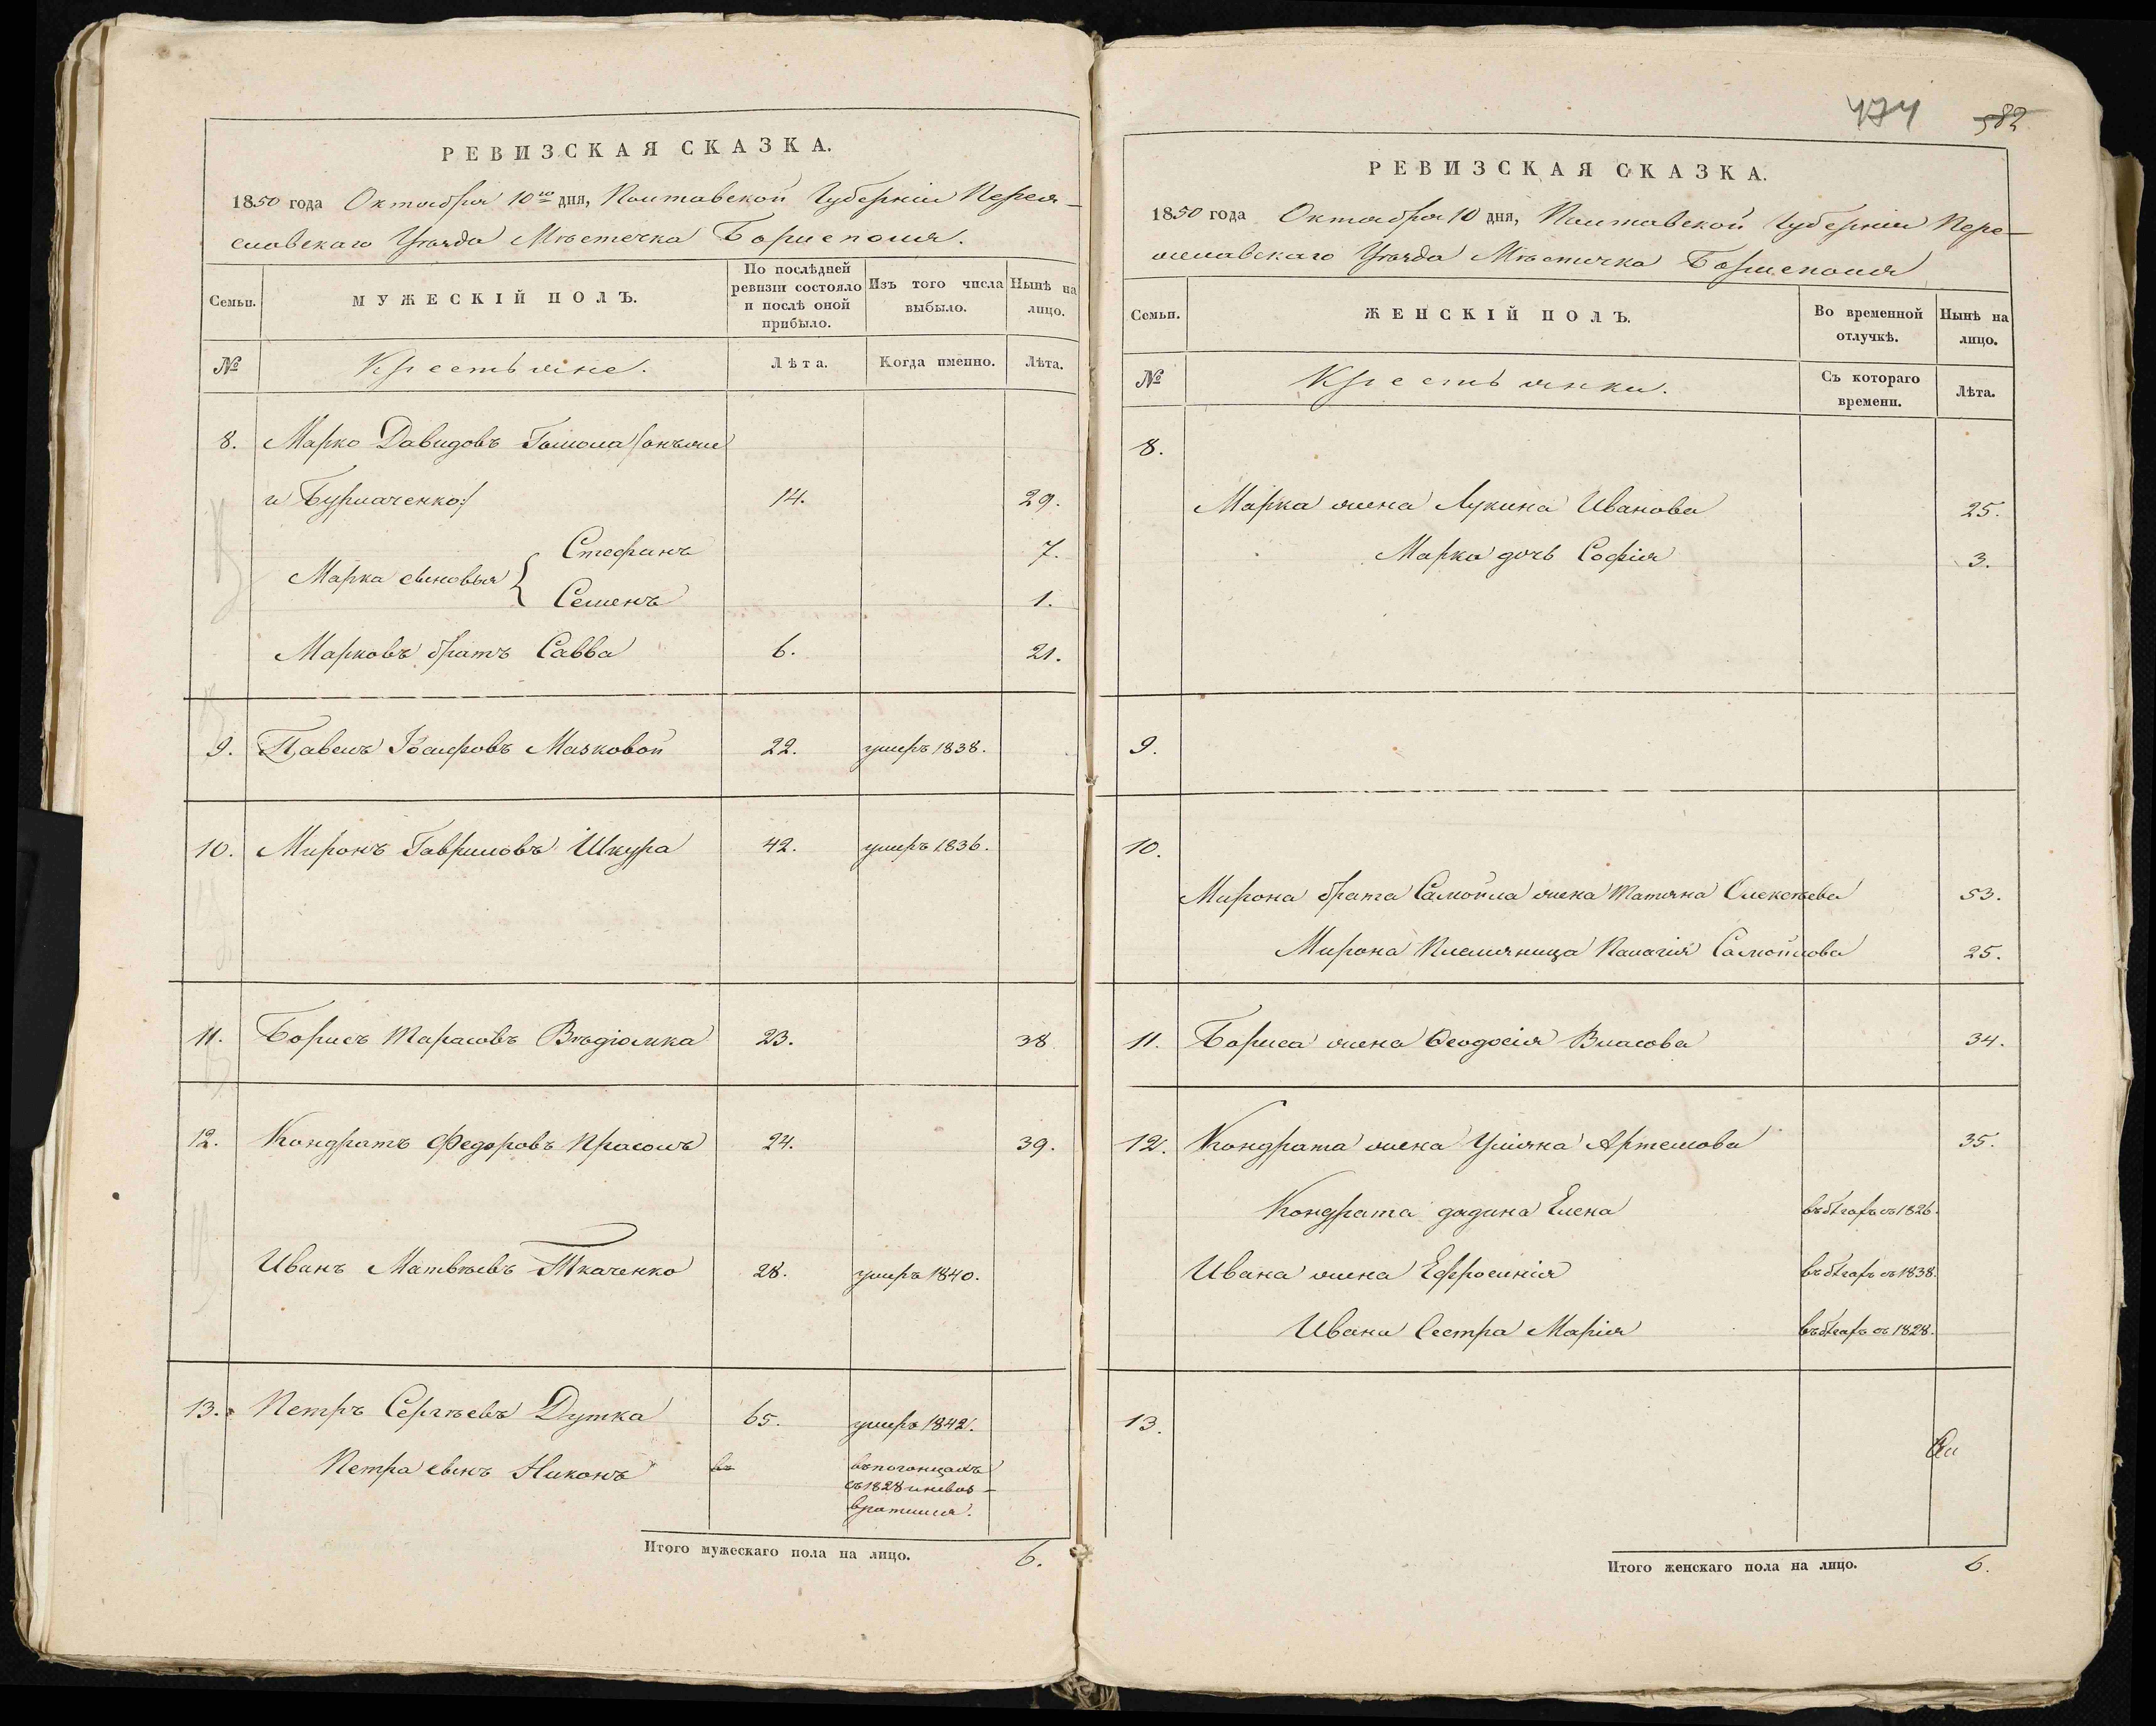 РЕВИЗСКАЯ СКАЗКА.
1850 года Октября 10го дня, Полтавской Губерніи Перея-
славскаго Уѣзда Мѣстечка Борисполя.
Семьи.
МУЖЕСКІЙ ПОЛЪ.
По послѣдней
ревизіи состояло
и послѣ оной
прибыло.
Изъ того числа
выбыло.
Нынѣ на
лицо.
№
Крестьяне.
Лѣта.
Когда именно.
Лѣта.
8. Марко Давидовъ Гомола /:онъже
и Бурлаченко:/ 14. 29.
Стефанъ 7.
Марка сыновья {
Семенъ 1.
Марковъ братъ Савва 6. 21.
9. Павелъ Маяковой 22. умеръ 1838.
10. Миронъ Гавриловъ Шкура 42. умеръ 1836.
11. Борисъ Тарасовъ Вѣдіомка 23. 38
12. Кондратъ Федоровъ Прасолъ 24. 39.
Иванъ Матвѣевъ Ткаченко 28. умеръ 1840.
13. Петръ Сергѣевъ Дутка 65. умеръ 1842.
Петра сынъ Никонъ въ въ погонцахъ
съ 1828 и невоз-
вратился.
Итого мужескаго пола на лицо. 6.
474 582
РЕВИЗСКАЯ СКАЗКА.
1850 года Октября 10 дня, Полтавской Губерніи Пере-
яславскаго Уѣзда Мѣстечка Борисполя
Семьи.
ЖЕНСКІЙ ПОЛЪ.
Во временной
отлучкѣ.
Нынѣ на
лицо.
№
Крестьянки.
Съ котораго
времени.
Лѣта.
8.
Марка жена Лукина Иванова 25.
Марка дочь Софія 3.
9.
10.
Мирона брата Самойла жена Татяна Олексѣева 53.
Мирона племяница Палагія Самойлова 25.
11. Бориса жена Феодосія Власова 34.
12. Кондрата жена Уліяна Артемова 35.
Кондрата дядина Елена въ бѣгахъ съ 1826.
Ивана жена Ефросинія въ бѣгахъ съ 1838.
Ивана сестра Марія въ бѣгахъ съ 1828.
13.
Итого женскаго пола на лицо. 6.